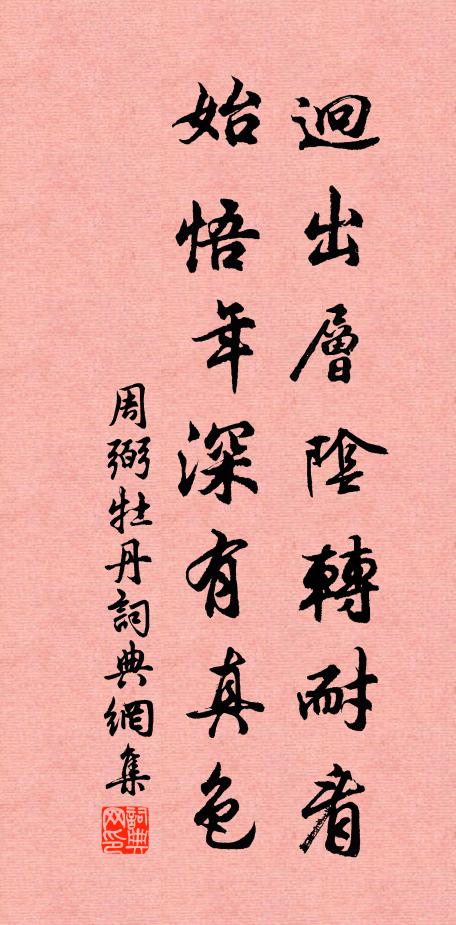 迥出層陰轉耐看
始悟年深有真色
周弼牡丹詞典網集
詞典网印